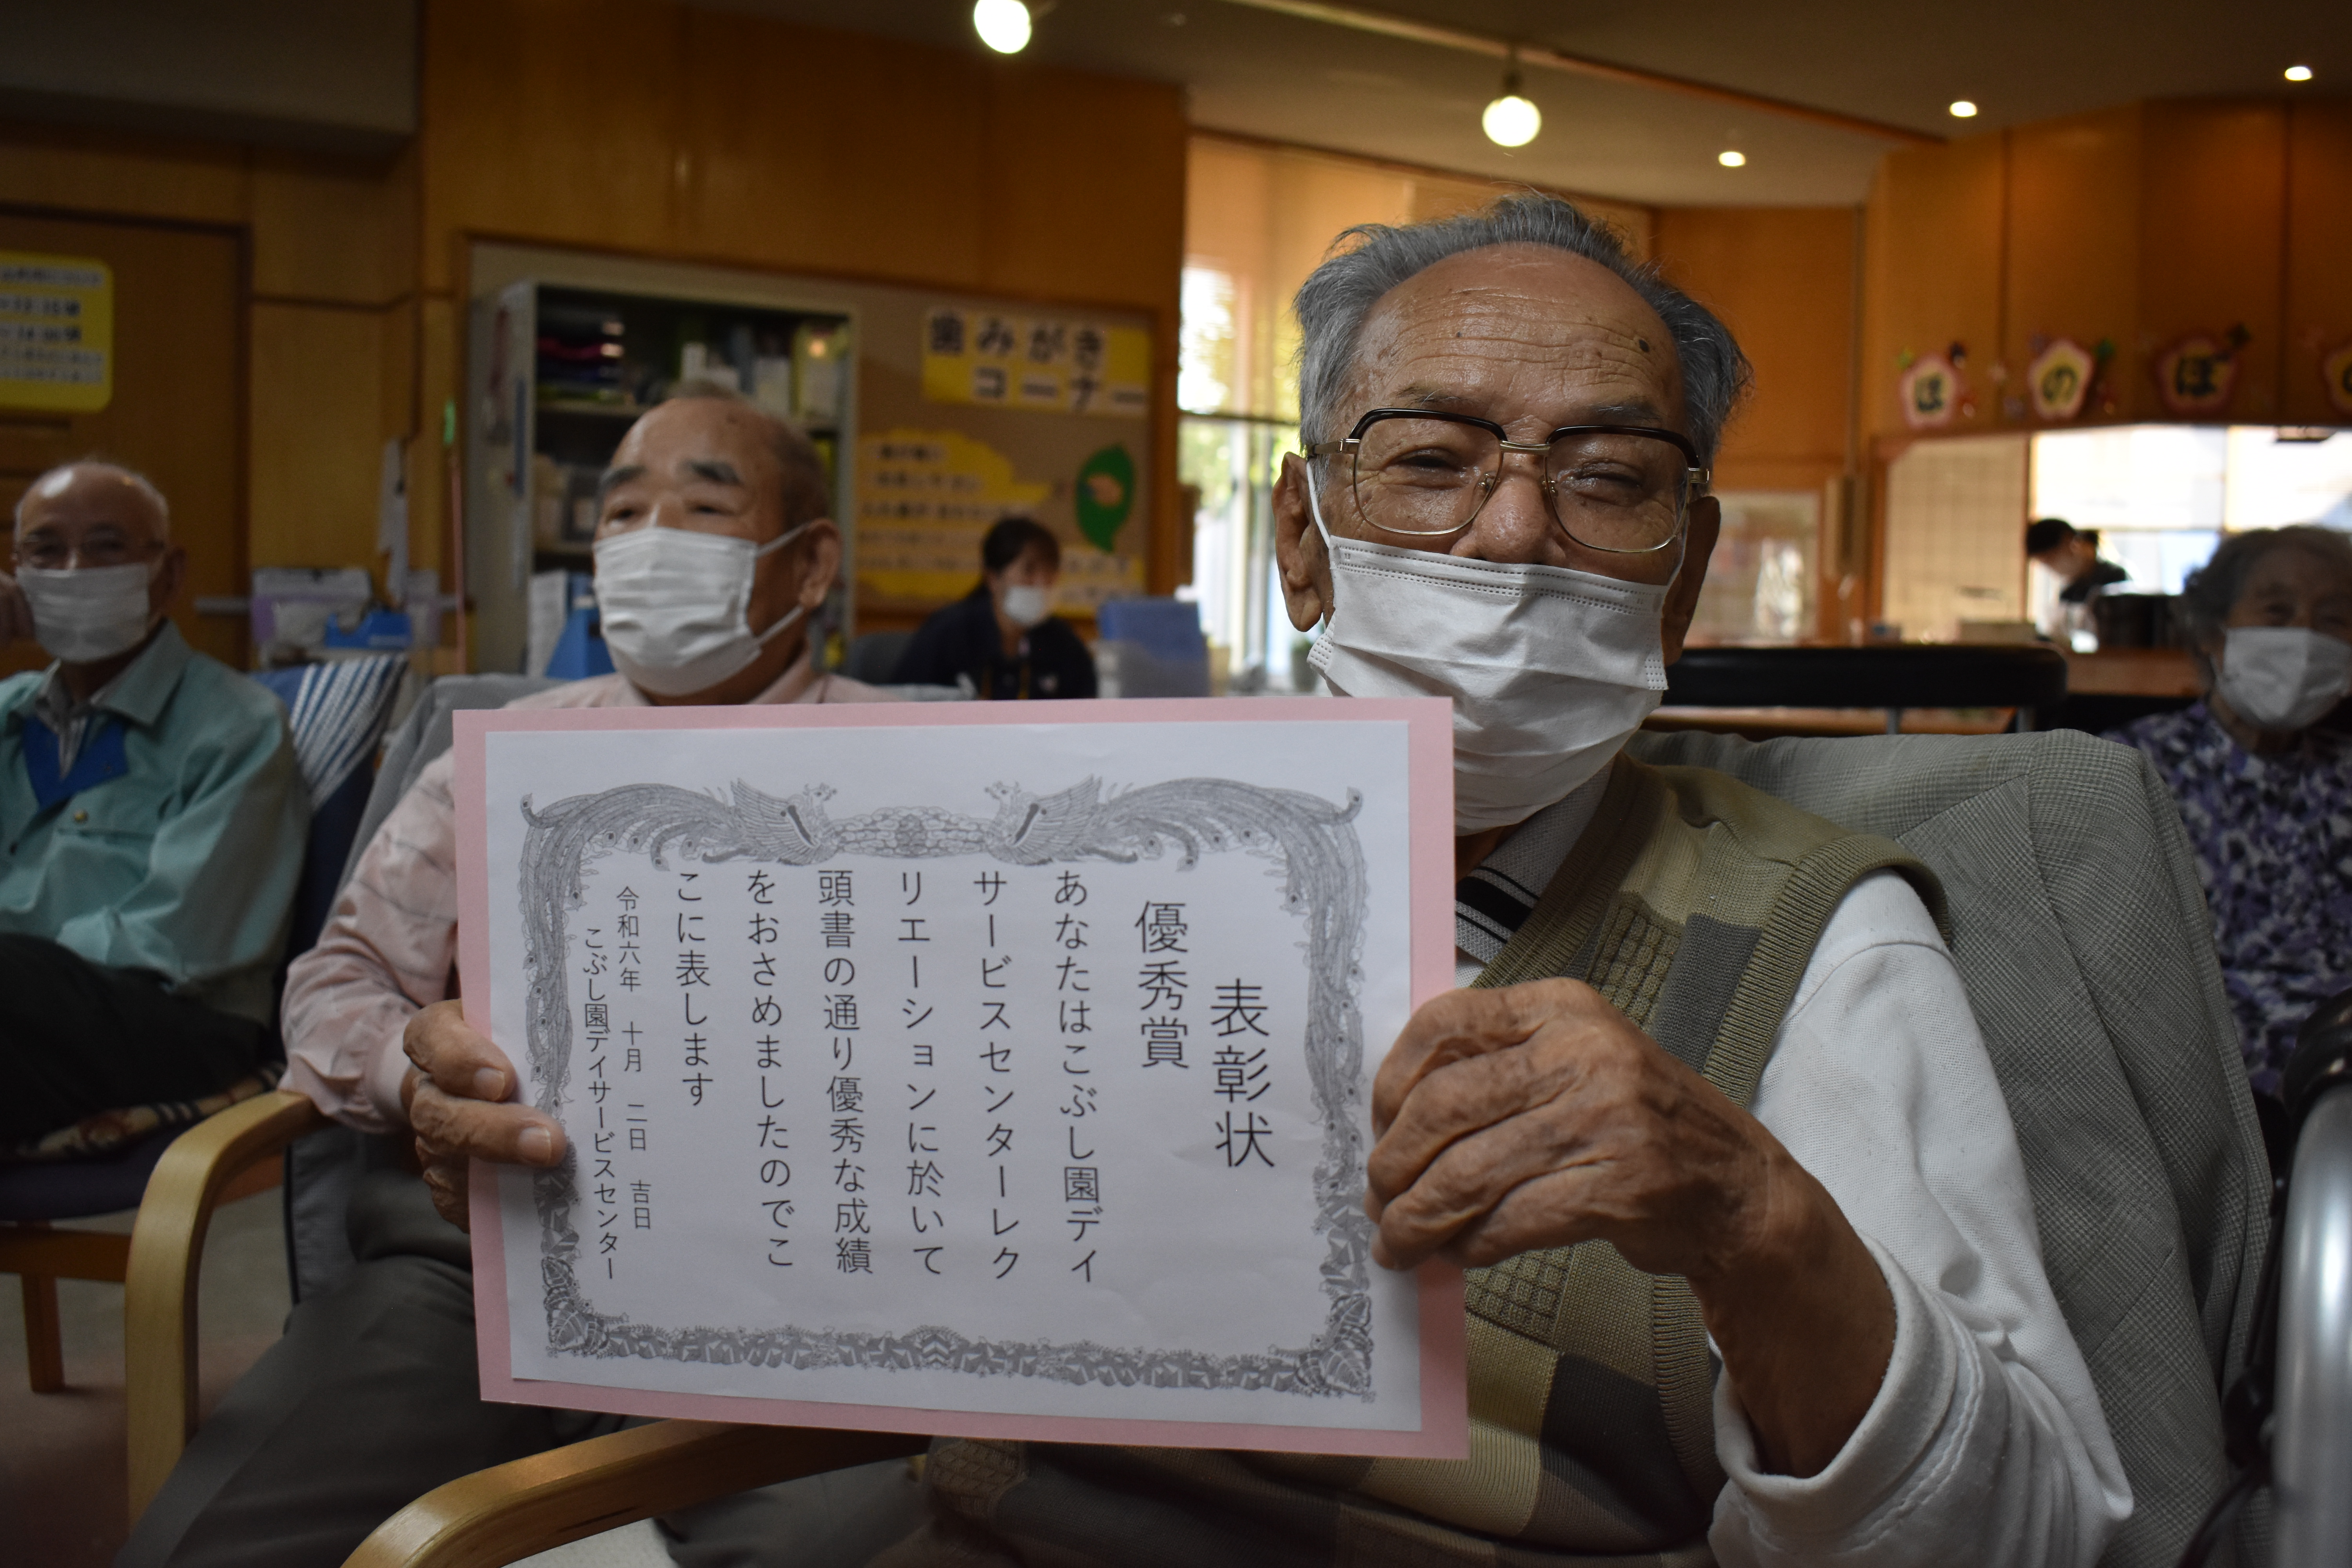 表彰状
優秀賞
あなたはこぶし園デイ
サービスセンターレク
リエーションに於いて
頭書の通り優秀な成績
をおさめましたのでこ
こに表します
令和六年 十月 二日 吉日
こぶし園デイサービスセンター
歯みがき
コーナー
ほのぼ